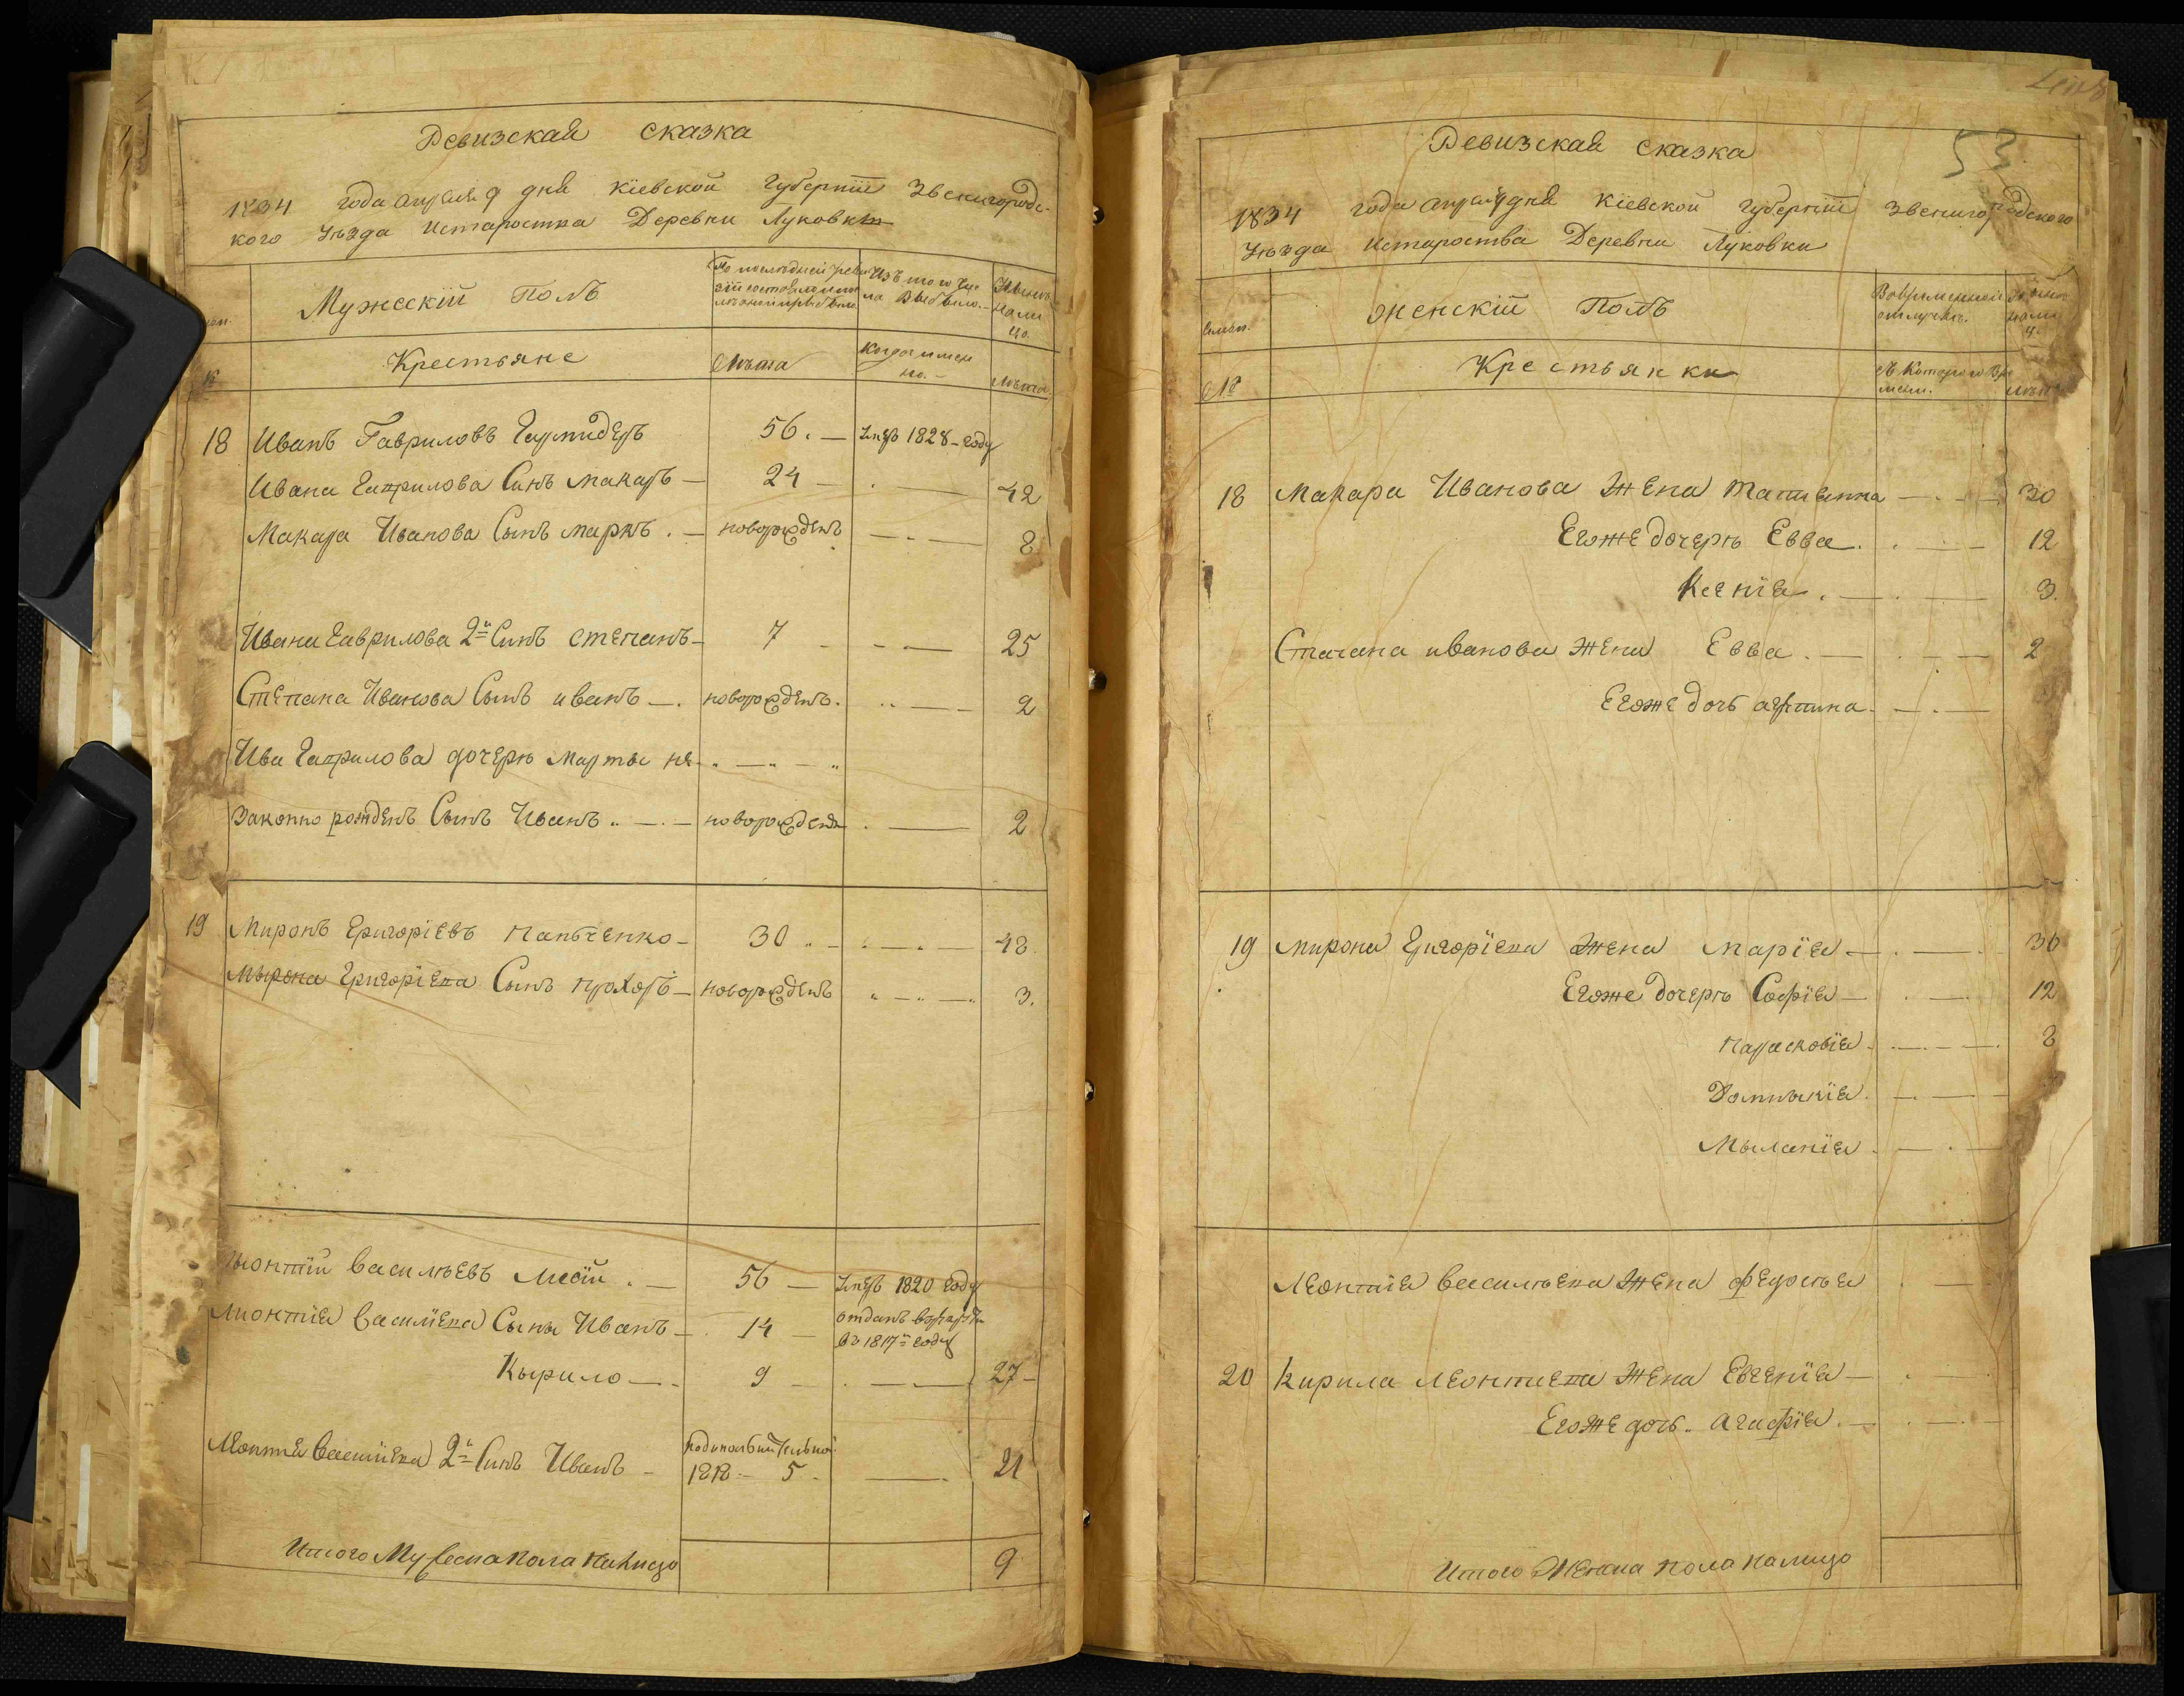 Ревизская сказка
1834 года апреля 9 дня Кіевской Губерніи Звенигородс-
кого Уѣзда Истароства Деревни Луковки
Мужескій Полъ
По последней реви
зіи состояло и
Изъ того чис
ла выбыло.
Нынѣ
нали
цо.
Крестьяне
Лѣта
Когда имен
но.
Лѣта
18 Иванъ Гавриловъ 56. — Умеръ 1828 – году
Ивана Гаврилова Синъ Макаръ — 24 — 42
Макара Иванова Сынъ Маркъ . — новорожденъ 8
Ивана Гаврилова 2й Синъ Степанъ — 7 25
Степана Иванова Сынъ иванъ — . новорожденъ. 2
Ива Гаврилова дочерь Марты не-
законно рожденъ Сынъ Иванъ новорожденъ 2
19 Миронъ Григоріевъ Панченко — 30 48
Мырона Григоріева Сынъ Прохоръ — новорожденъ 3.
Васильевъ 56 — Умеръ 1820 году
Лионтія Василіева Сыны Иванъ — 14 — отданъ
въ 1817м году
Кырило — 9 27 —
Леонтія Василіева 2й Синъ Иванъ —
1818 — 5 . 21
Итого Мужеска пола налицо 9
53
Ревизская сказка
1834 года апреля 9 дня Кіевской Губерніи Звенигородского
Уѣзда Истароства Деревни Луковки
Женскій Полъ
Вовременной
отлучке.
нали
ц.
Крестьянки
№
Съ Которого Вре
мени.
18 Макара Иванова Жена Татіанна 30
Егоже дочерь Евва. 12
Ксенія. 3.
Степана иванова жена Евва. 2
Егоже дочь
19 Мирона Григоріева Жена Марія — 36
Егоже дочерь Софія — 12
Парасковія. 8
Домникія.
Мыланія.
Леонтія Василіева Жена Федосья
20 Кирила Леонтиева Жена Евгенія —
Егоже дочь. Агафія. —
Итого Женска пола налицо